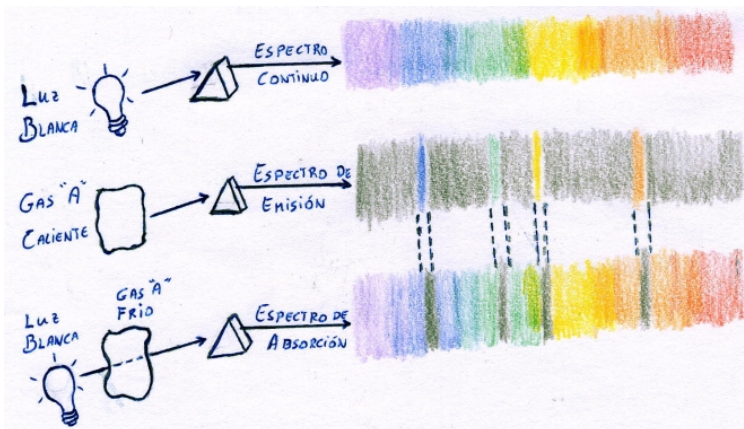 LUZ
BLANCA
ESPECTRO
CONTINUO
GAS "A"
CALIENTE
ESPECTRO DE
EMISIÓN
LUZ
BLANCA
GAS "A"
FRÍO
ESPECTRO DE
ABSORCIÓN